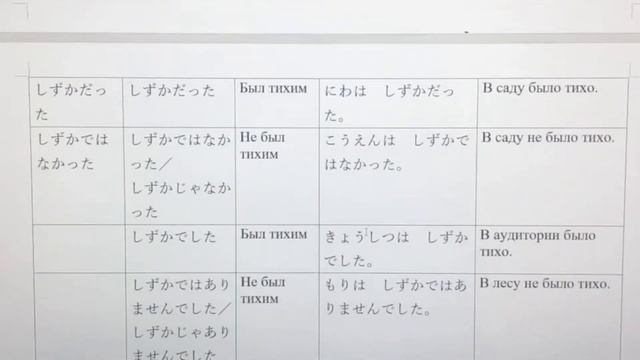 しずかだっ
た
しずかだった
Был тихим
にわは　しずかだっ
た。
В саду было тихо.
しずかでは
なかった
しずかではなか
った／
しずかじゃなか
った
Не был
тихим
こうえんは　しずかで
はなかった。
В саду не было тихо.
しずかでした
Был тихим
きょうしつは　しずか
でした。
В аудитории было
тихо.
しずかではあり
ませんでした／
しずかじゃあり
ませんでした
Не был
тихим
もりは　しずかではあ
りませんでした。
В лесу не было тихо.